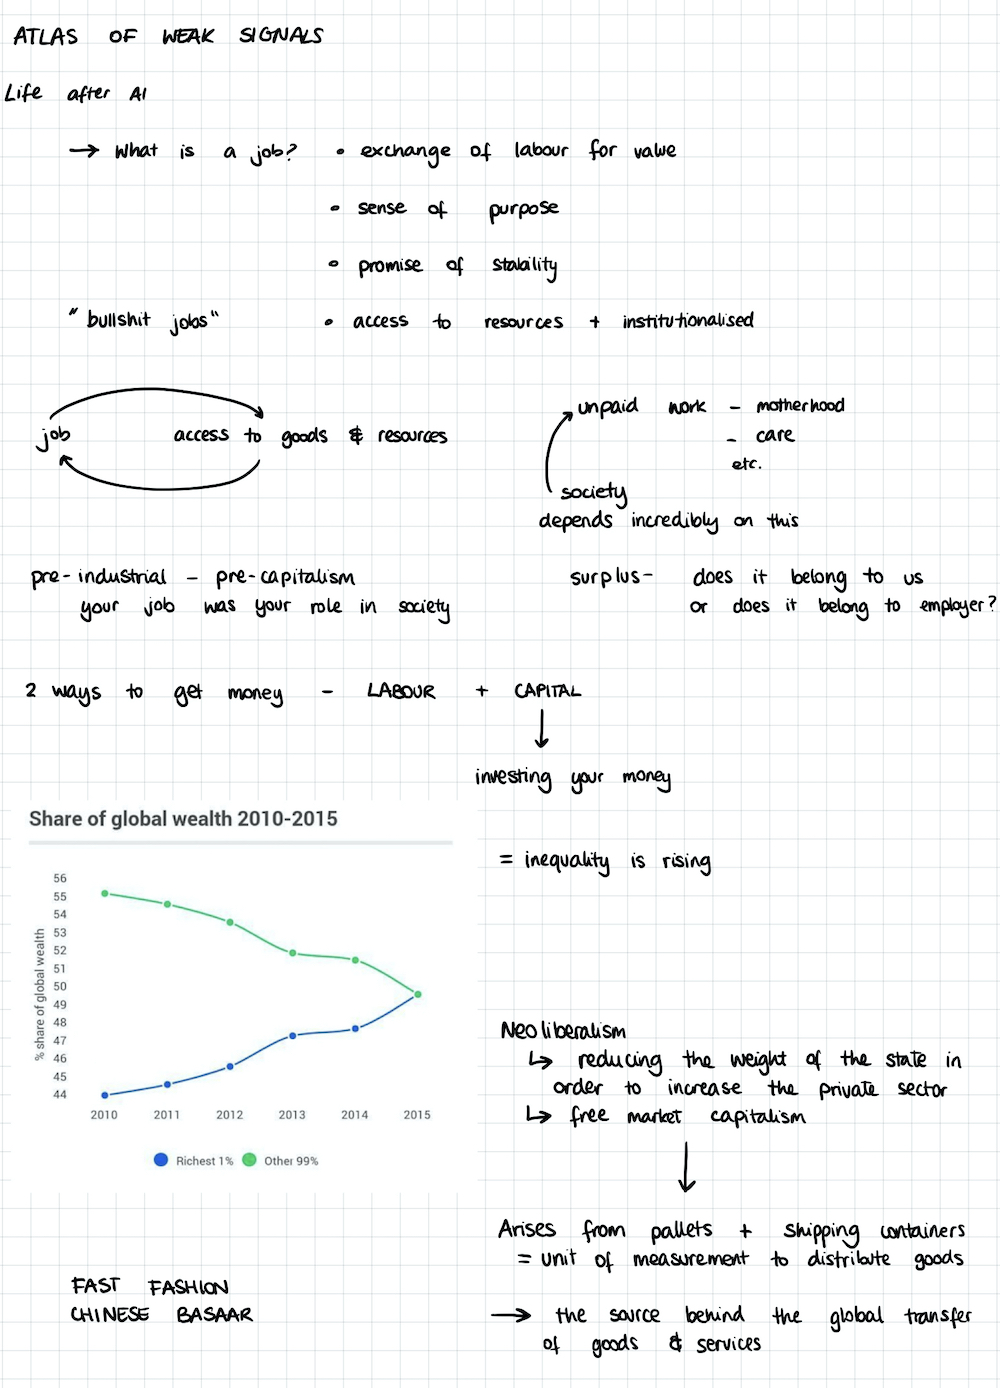 ATLAS OF WEAK SIGNALS
Life after AI
→ What is a job? • exchange of labour for value
• sense of purpose
• promise of stability
"bullshit jobs" • access to resources + institutionalised
job access to goods & resources
unpaid work - motherhood
- care
etc.
society
depends incredibly on this
pre-industrial - pre-capitalism
your job was your role in society
surplus- does it belong to us
or does it belong to employer?
2 ways to get money - LABOUR + CAPITAL
↓
investing your money
= inequality is rising
Share of global wealth 2010-2015
% share of global wealth
56
55
54
53
52
51
50
49
48
47
46
45
44
2010 2011 2012 2013 2014 2015
Richest 1% Other 99%
Neoliberalism
↳ reducing the weight of the state in
order to increase the private sector
↳ free market capitalism
↓
Arises from pallets + shipping containers
= unit of measurement to distribute goods
→ the source behind the global transfer
of goods & services
FAST FASHION
CHINESE BASAAR